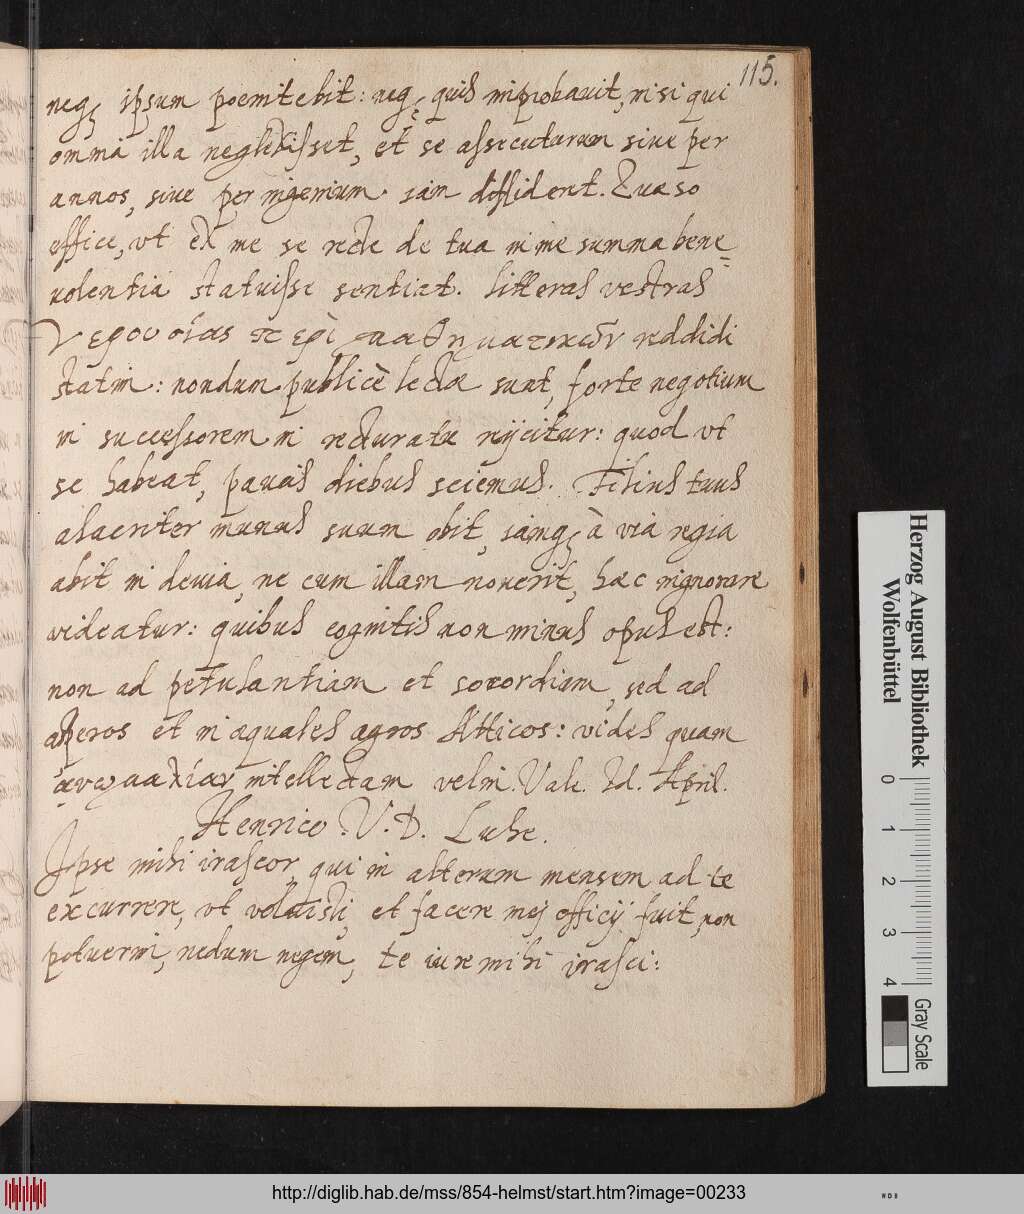 115.
neq₃ ipsum poenitebit: neq₃ quis improbavit, nisi qui
omnia illa neglexisset, et se assecuturum sive per
annos, sive per ingenium iam diffident. Quaeso
effice, vt ex me se recte de tua in me summa bene=
volentia statuisse sentiat. Litteras vestras
περὶ μαθηματικῶν reddidi
statim: nondum publicè lectae sunt, forte negotium
in successorem in rectoratu reijcitur: quod vt
se habeat, paucis diebus sciemus. Filius tuus
alacriter munus suum obit, iamq₃ à via regia
abit in devia, ne cum illam noverit, haec ignorare
videatur: quibus cognitis non minus opus est:
non ad petulantiam et socordiam, sed ad
asperos et inaequales agros Atticos: vides quam
intellectam velim. Vale. Id. April.
Henrico V. D. Luhe.
Ipse mihi irascor, qui in alterum mensem ad te
excurrere, vt voluisti, et facere mej officij fuit, non
potuerim, nedum negem, te iure mihi irasci:
Herzog August Bibliothek
Wolfenbüttel
0 1 2 3 4
Gray Scale
http://diglib.hab.de/mss/854-helmst/start.htm?image=00233